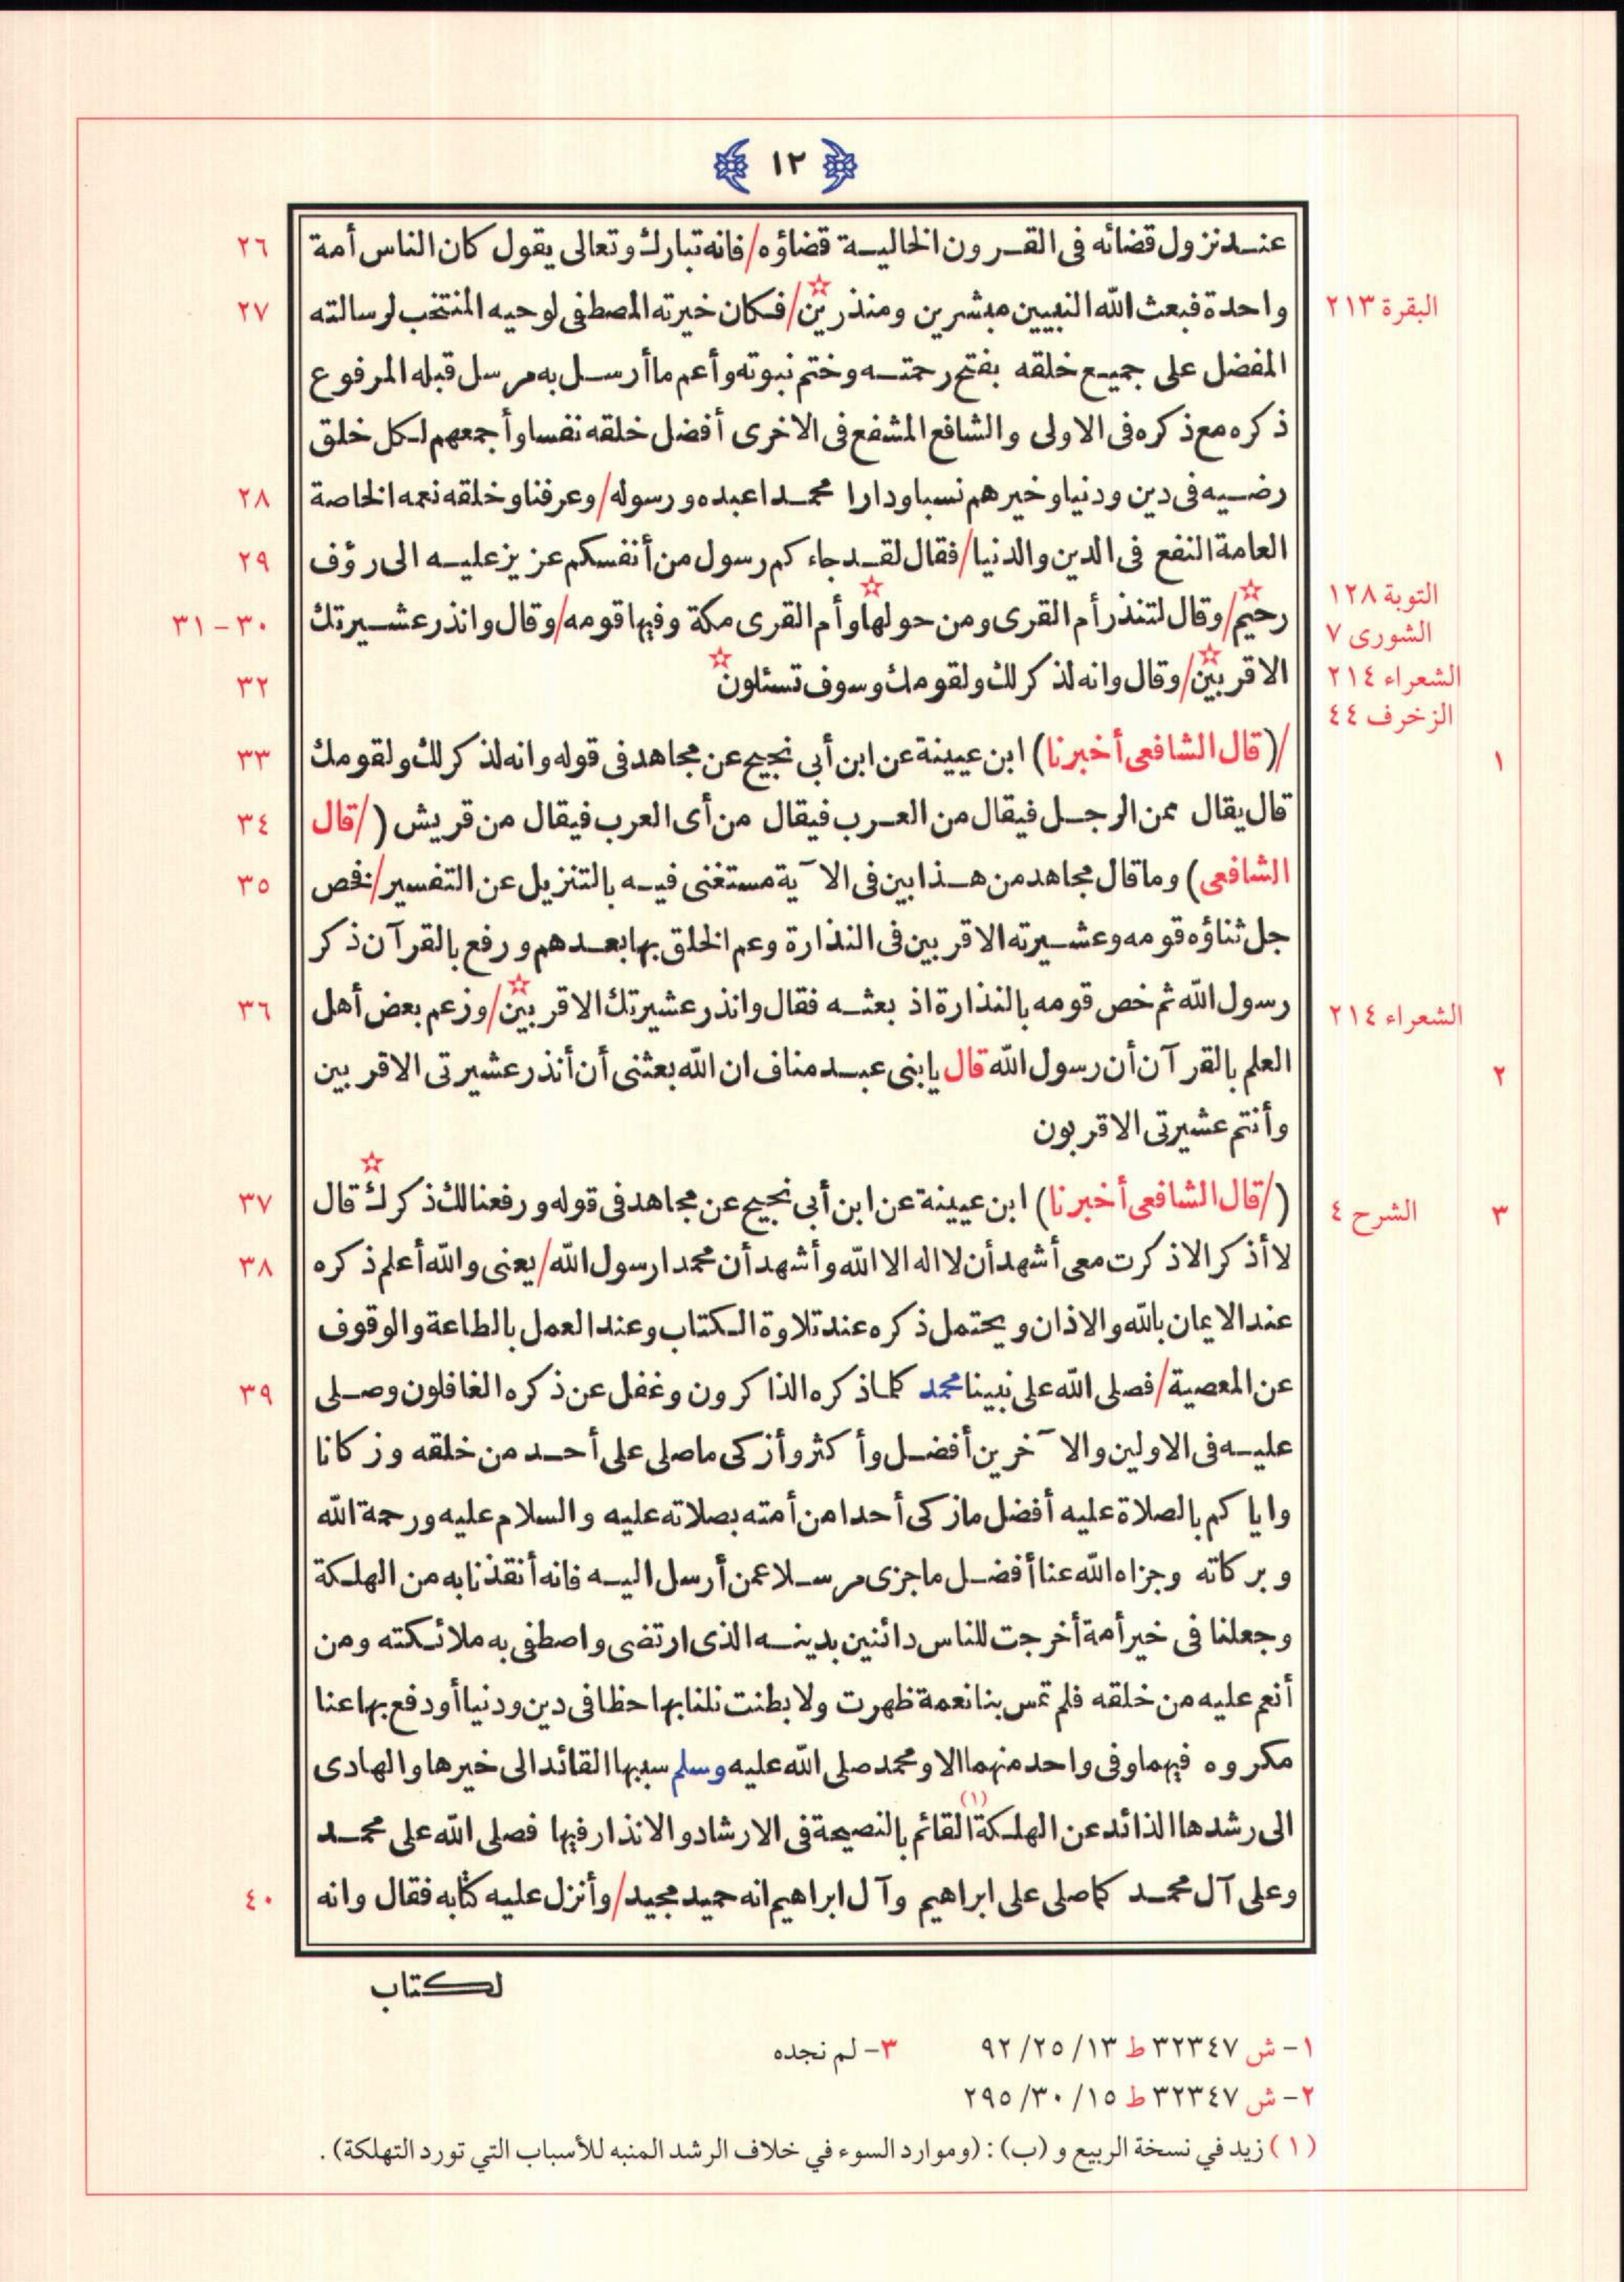 ١٢
عنـد نزول قضائه فى القـرون الخاليـة قضاؤه/فانه تبارك وتعالى يقول كان الناس أمة ٢٦
البقرة ٢١٣ واحدة فبعث الله النبيين مبشرين ومنذرين☆/فكان خيرته المصطفى لوحيه المنتخب لرسالته ٢٧
المفضل على جميـع خلقه بفتح رحمتـه وختم نبوته وأعم ما أرسـل به مرسل قبله المرفوع
ذكره مع ذكره فى الاولى والشافع المشفع فى الاخرى أفضل خلقه نفسا وأجمعهم لكل خلق
رضـيه فى دين ودنيا وخيرهم نسبا ودارا محمـدا عبده ورسوله/وعرفنا وخلقه نعمه الخاصة ٢٨
العامة النفع فى الدين والدنيا/فقال لقـد جاءكم رسول من أنفسكم عزيز عليـه الى رؤف ٢٩
التوبة ١٢٨
الشورى ٧ رحيم☆/وقال لتنذر أم القرى ومن حولها☆ وأم القرى مكة وفيها قومه/وقال وانذر عشـيرتك ٣٠-٣١
الشعراء ٢١٤ الاقربين☆/وقال وانه لذكر لك ولقومك وسوف تسئلون☆ ٣٢
الزخرف ٤٤
١ /(قال الشافعى أخبرنا) ابن عيينة عن ابن أبى نجيح عن مجاهد فى قوله وانه لذكر لك ولقومك ٣٣
قال يقال ممن الرجـل فيقال من العـرب فيقال من أى العرب فيقال من قريش (/قال ٣٤
الشافعى) وما قال مجاهد من هـذا بين فى الآية مستغنى فيـه بالتنزيل عن التفسير/فخص ٣٥
جل ثناؤه قومه وعشـيرته الاقربين فى النذارة وعم الخلق بها بعـدهم ورفع بالقرآن ذكر
الشعراء ٢١٤ رسول الله ثم خص قومه بالنذارة اذ بعثـه فقال وانذر عشيرتك الاقربين☆/وزعم بعض أهل ٣٦
٢ العلم بالقرآن أن رسول الله قال يا بنى عبـد مناف ان الله بعثنى أن أنذر عشيرتى الاقربين
وأنتم عشيرتى الاقربون
٣ الشرح ٤ (/قال الشافعى أخبرنا) ابن عيينة عن ابن أبى نجيح عن مجاهد فى قوله ورفعنا لك ذكرك☆ قال ٣٧
لا أذكر الا ذكرت معى أشهد أن لا اله الا الله وأشهد أن محمدا رسول الله/يعنى والله أعلم ذكره ٣٨
عند الايمان بالله والاذان ويحتمل ذكره عند تلاوة الكتاب وعند العمل بالطاعة والوقوف
عن المعصية/فصلى الله على نبينا محمد كلما ذكره الذاكرون وغفل عن ذكره الغافلون وصـلى ٣٩
عليـه فى الاولين والآخرين أفضـل وأكثر وأزكى ما صلى على أحـد من خلقه وزكانا
واياكم بالصلاة عليه أفضل ما زكى أحدا من أمته بصلاته عليه والسلام عليه ورحمة الله
وبركاته وجزاه الله عنا أفضـل ما جزى مرسـلا عمن أرسل اليـه فانه أنقذنا به من الهلكة
وجعلنا فى خير أمة أخرجت للناس دائنين بدينـه الذى ارتضى واصطفى به ملائكته ومن
أنعم عليه من خلقه فلم تمس بنا نعمة ظهرت ولا بطنت نلنا بها حظا فى دين ودنيا أو دفع بها عنا
مكروه فيهما وفى واحد منهما الا ومحمد صلى الله عليه وسلم سببها القائد الى خيرها والهادى
الى رشدها الذائد عن الهلكة(١) القائم بالنصيحة فى الارشاد والانذار فيها فصلى الله على محمـد
وعلى آل محمـد كما صلى على ابراهيم وآل ابراهيم انه حميد مجيد/وأنزل عليه كتابه فقال وانه ٤٠
لكتاب
١- ش ٣٢٣٤٧ ط ١٣/ ٢٥/ ٩٢ ٣- لم نجده
٢- ش ٣٢٣٤٧ ط ١٥/ ٣٠/ ٢٩٥
(١) زيد في نسخة الربيع و (ب) : (وموارد السوء في خلاف الرشد المنبه للأسباب التي تورد التهلكة) .